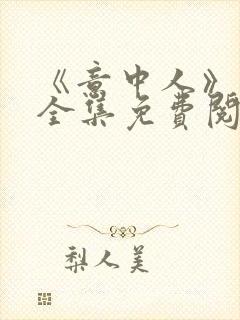 《意中人》
全集免費閱
梨人美